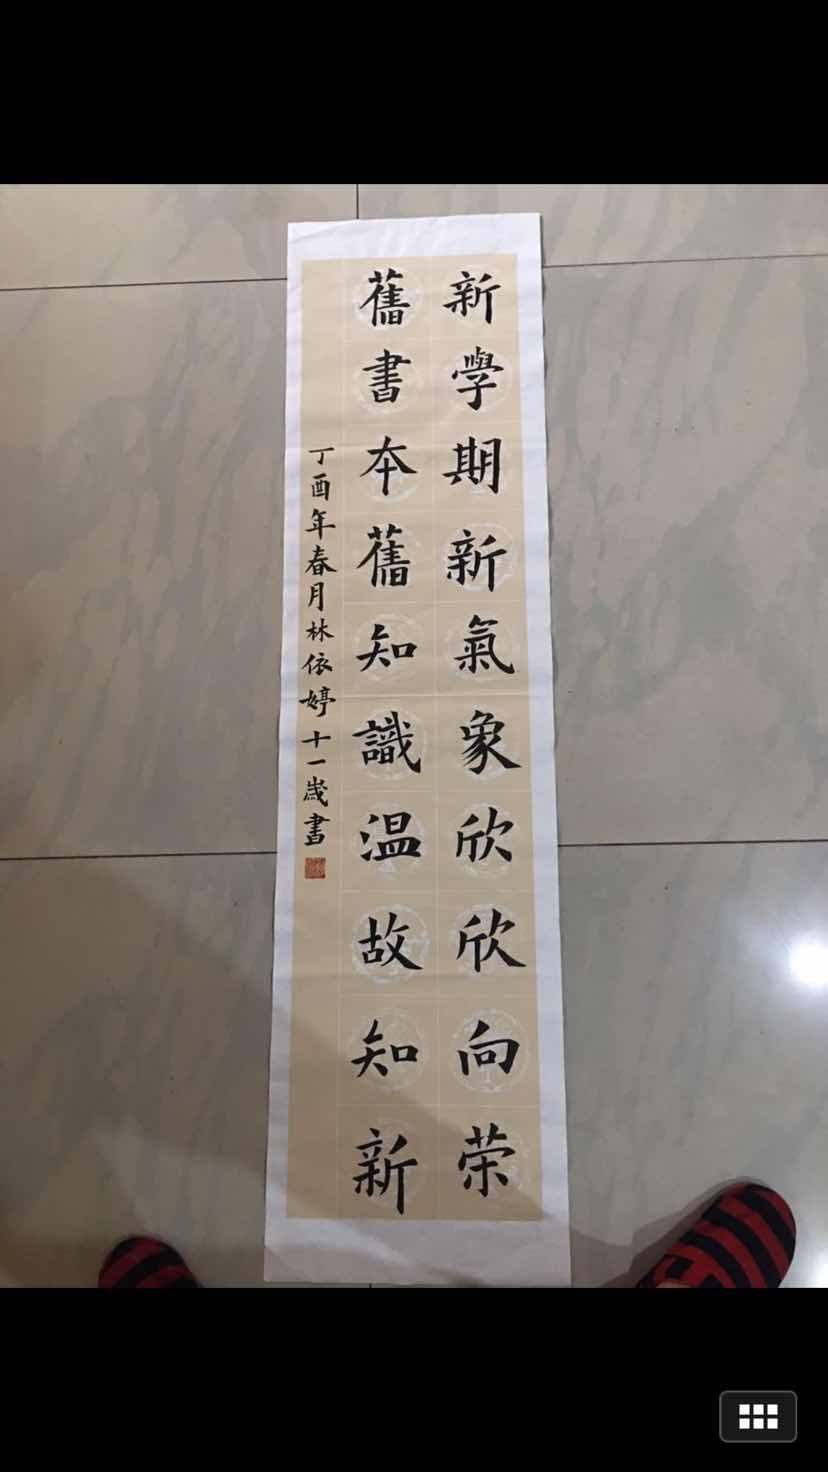 新學期新氣象欣欣向荣
舊書本舊知識温故知新
丁酉年春月林依婷十一歲書